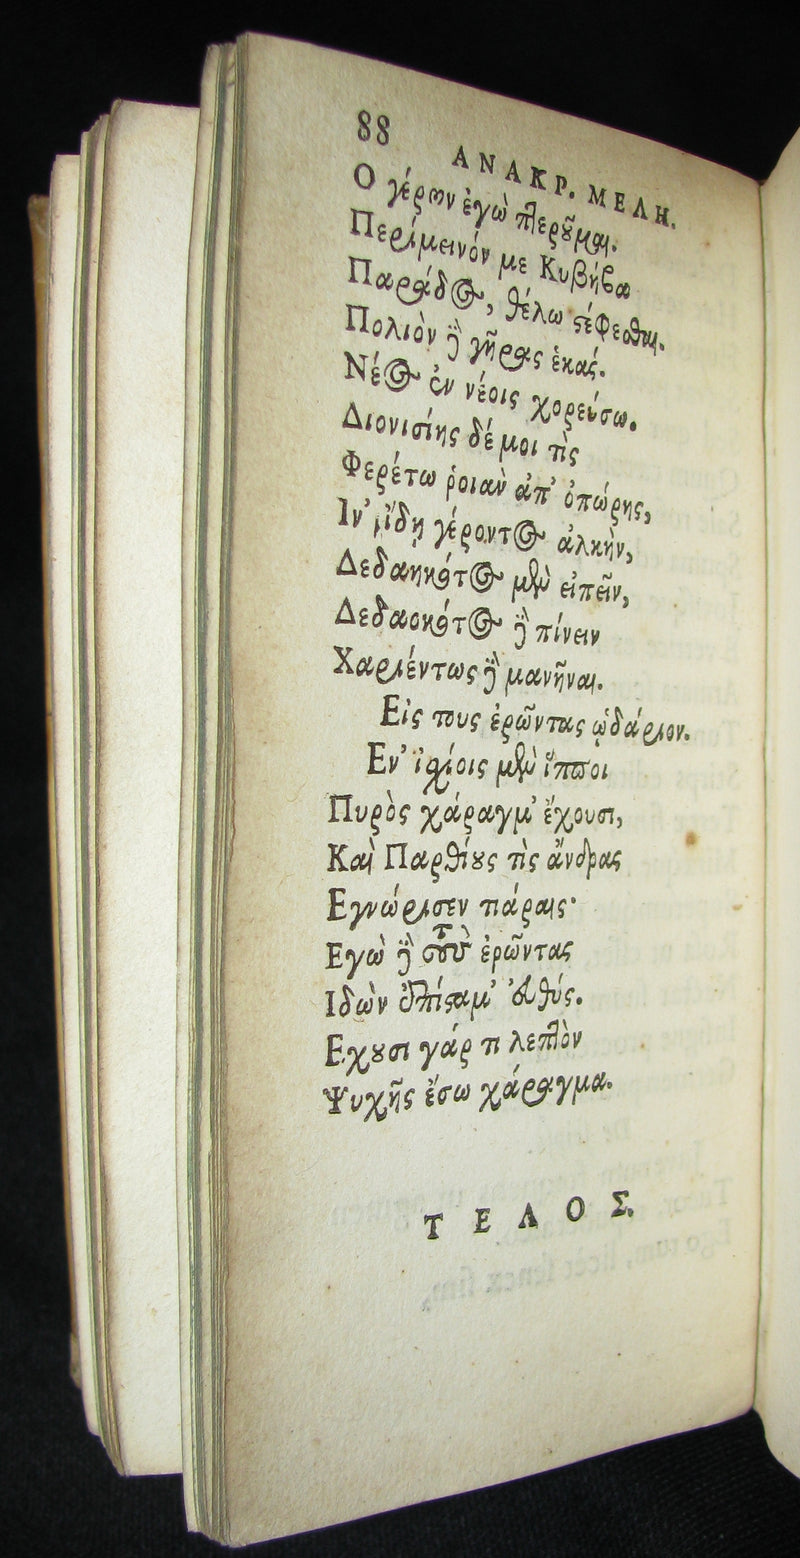 88 ΑΝΑΚΡ. ΜΕΛΗ.
Ο γέρων ἐγὼ πτεροῦμαι.
Περίμεινόν με Κυβήβα
Παράδος, θέλω στέφεσθαι.
Πολιὸν δὲ γῆρας ἑκάς.
Νέος ἐν νέοις χορεύσω.
Διονισίης δέ μοι τὶς
Φερέτω ῥοιὰν ἀπ' ὀπώρης,
Ιν' ἴδῃ γέροντος ἀλκὴν,
Δεδαηκότος μὲν εἰπεῖν,
Δεδαοκότος δὲ πίνειν
Χαριέντως δὲ μανῆναι.
Εἰς τους ἐρῶντας ᾠδάριον.
Εν' ἰσχίοις μὲν ἵπποι
Πυρὸς χάραγμ' ἔχουσι,
Καὶ Παρθίους τὶς ἄνδρας
Εγνώρισεν τιάραις·
Εγὼ δὲ τοὺς ἐρῶντας
Ιδὼν ἐπίσταμ' εὐθύς.
Εχουσι γάρ τι λεπτὸν
Ψυχῆς ἔσω χάραγμα.
ΤΕΛΟΣ.